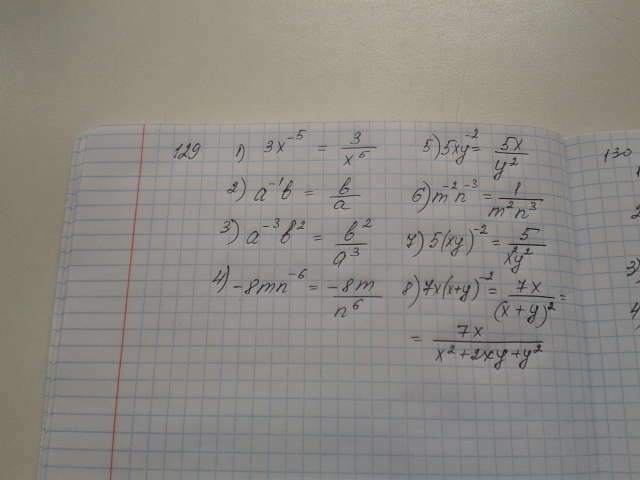 129 1) 3x⁻⁵ = 3/x⁵
2) a⁻¹b = b/a
3) a⁻³b² = b²/a³
4) -8mn⁻⁶ = -8m/n⁶
5) 5xy⁻² = 5x/y²
6) m⁻²n⁻³ = 1/m²n³
7) 5(xy)⁻² = 5/x²y²
8) 7x(x+y)⁻² = 7x/(x+y)² =
= 7x/x²+2xy+y²
130
3)
4